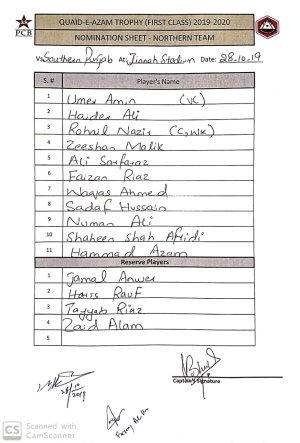 PCB
QUAID-E-AZAM TROPHY (FIRST CLASS) 2019-2020
NOMINATION SHEET - NORTHERN TEAM
vs Southern Punjab At: Jinnah Stadium Date: 28-10-19
S. # Player's Name
1 Umer Amin (VC)
2 Haider Ali
3 Rohail Nazir (C, WK)
4 Zeeshan Malik
5 Ali Sarfaraz
6 Faizan Riaz
7 Waqas Ahmed
8 Sadaf Hussain
9 Numan Ali
10 Shaheen Shah Afridi
11 Hammad Azam
Reserve Players
1 Jamal Anwer
2 Haris Rauf
3 Tayyab Riaz
4 Zaid Alam
5
Captain's Signature
28/10
2019
CS Scanned with
CamScanner